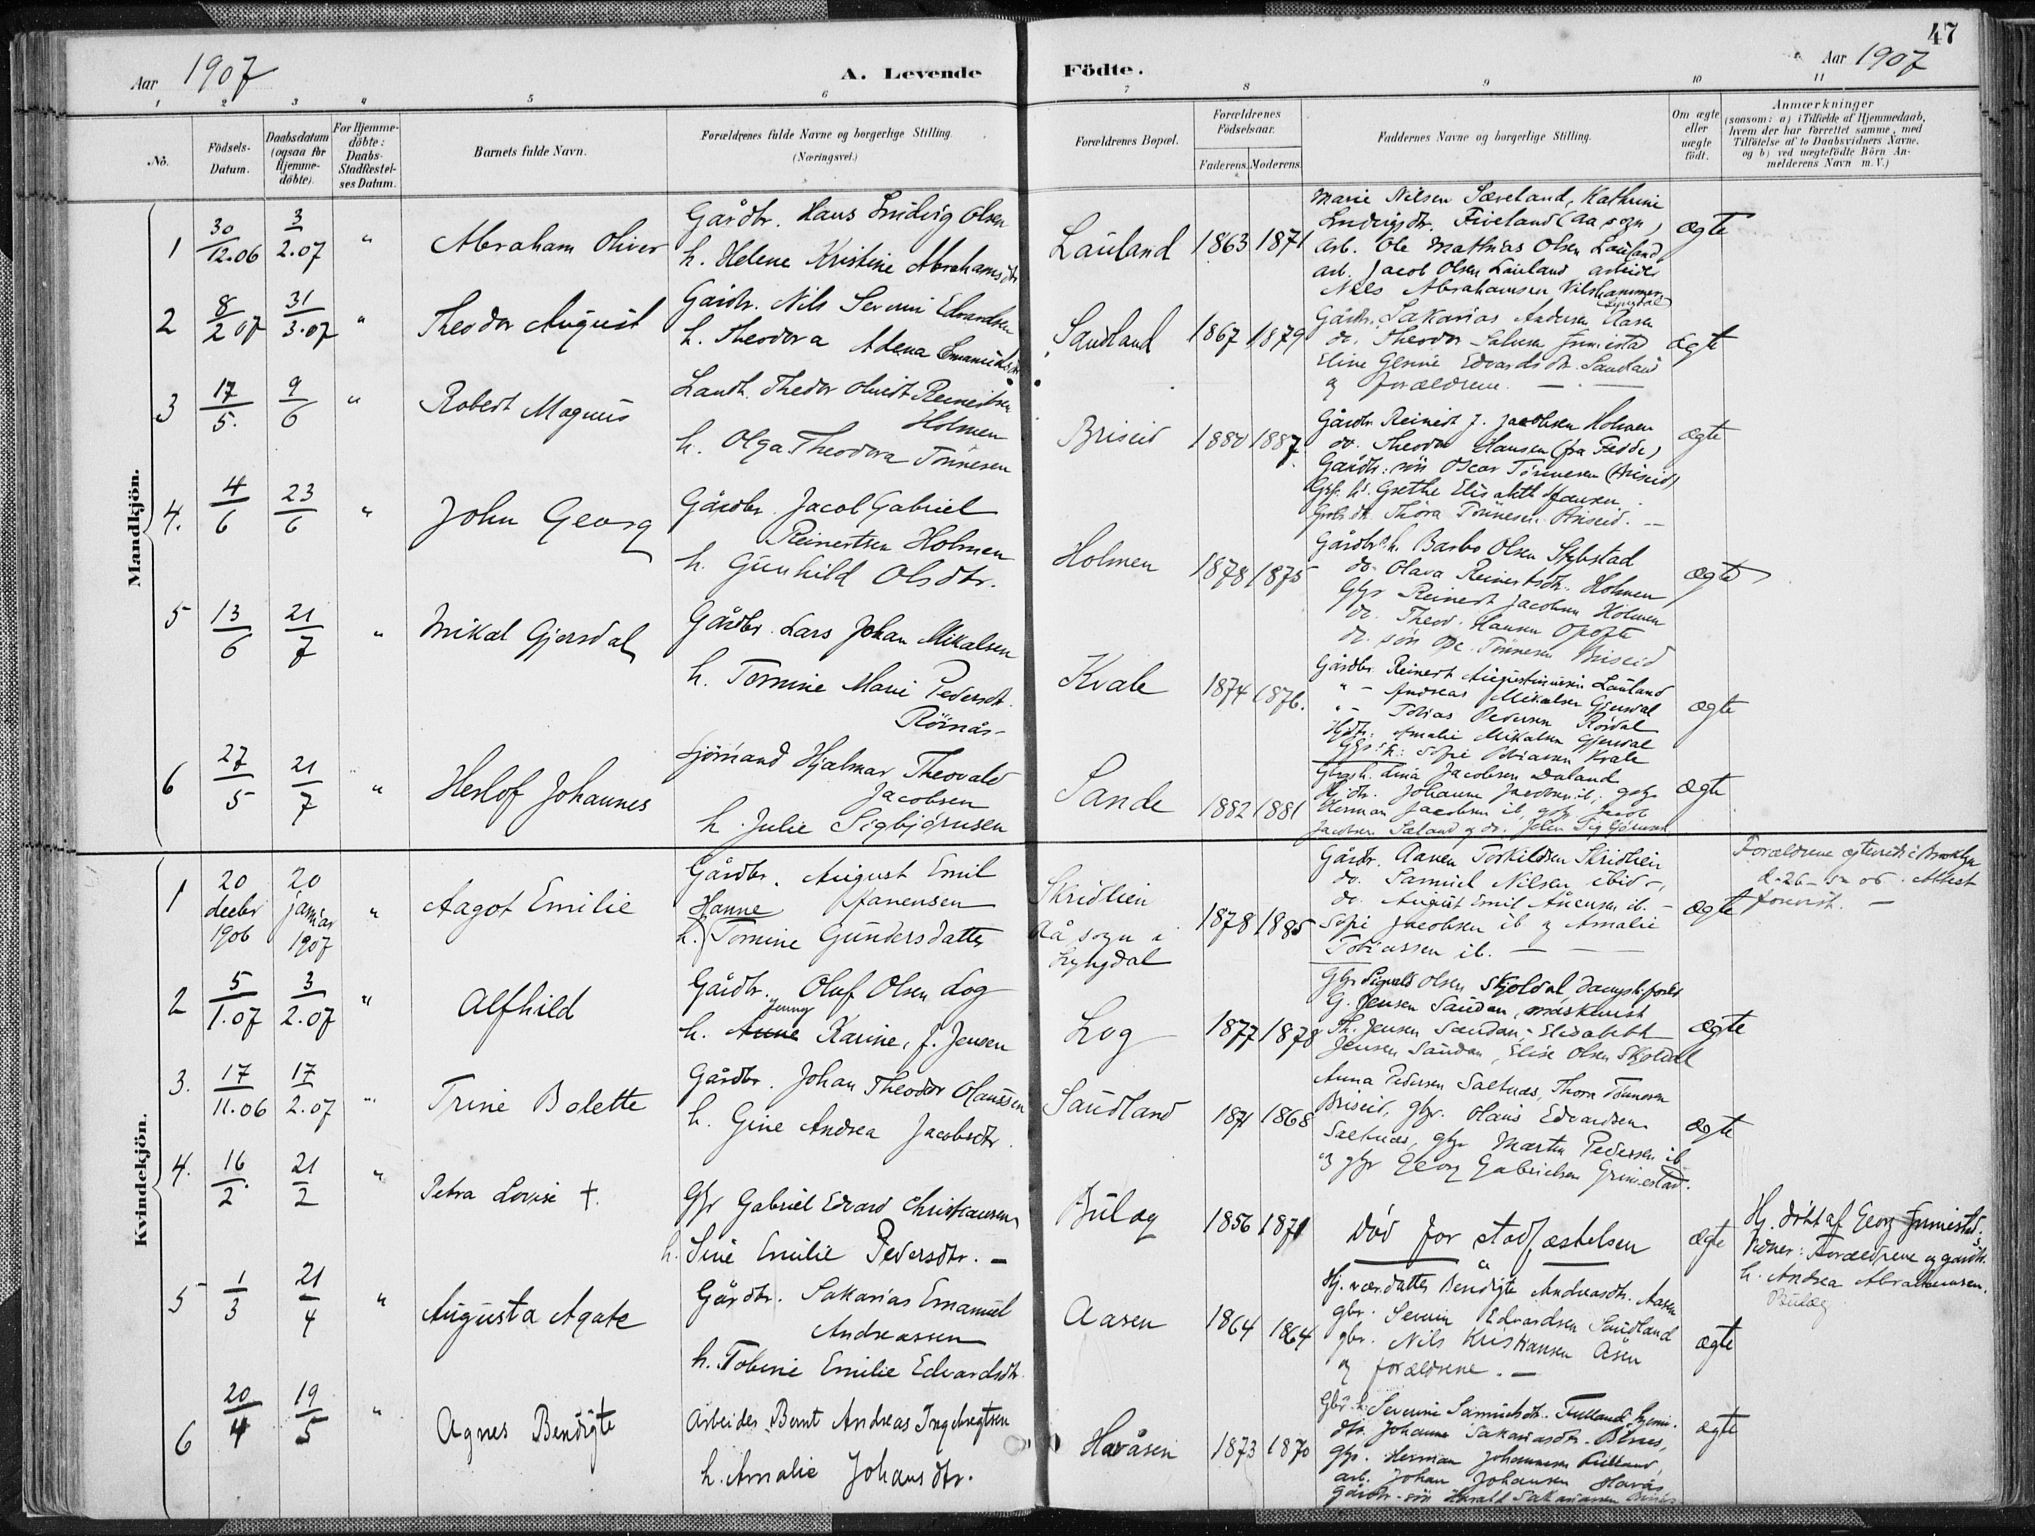 47
Aar 1907
A. Levende Födte.
Aar 1907
1 2 3 " 5 6 7 8 9 10 11
No.
Födsels-
Datum.
Daabsdatum
(ogsaa for
Hjemme-
döbte).
For Hjemme-
döbte:
Daabs-
Stadfæstel-
ses Datum.
Barnets fulde Navn.
Forældrenes fulde Navne og borgerlige Stilling.
(Næringsvei.)
Forældrenes Bopæl.
Forældrenes
Födselsaar.
Faderens. Moderens.
Faddernes Navne og borgerlige Stilling.
Om ægte
eller
uægte
født.
Anmærkninger
(saasom: a) i Tilfælde af Hjemmedaab,
hvem der har forrettet samme, med
Tilføielse af to Daabsvidners Navne,
og b) ved uægtefødte Børn An-
melderens Navn m. V.)
Mandkjön.
1 30/12.06 3/2.07 " Abraham Oliver
Gårdbr. Hans Ludvig Olsen
h. Helene Kristine Abrahamsdtr
Lauland 1863 1871
Marie Nilsen Sæveland, Kathrine
Ludvigsdtr. Fiveland (Aa sogn)
arb. Ole Mathias Olsen Lauland
arb. Jacob Olsen Lauland, arbeider
Nils Abrahamsen
ægte
2 8/2 07 31/3.07 " Theodor August
Gårdbr. Nils Severin Edvardsen
h. Theodora Adena
Saudland 1867 1879
Gårdbr. Sakarias Andersen Aasen
do. Theodor
Edvardsdtr. Saudland
og forældrene. —
ægte
3 17/5. 9/6 " Robert Magnus
Theodor Reinertsen
Holmen
h. Olga Theodora Tönnesen
Briseid 1880 1887
Gårdbr. Reinert J. Jacobsen Holmen
do. Theodor Hansen (fra Fedde)
Gårdbr. sön Oscar Tönnesen (Briseid)
Grethe Elisabeth Hansen
Thora Tönnesen Briseid. —
ægte
4. 4/6 23/6 " John Georg
Gårdbr. Jacob Gabriel
Reinertsen Holmen
h. Gunhild Olsdtr.
Holmen 1878 1875
Gårdbr. h. Barbo Olsen
do. Olava Reinertsdtr. Holmen
Gbr Reinert Jacobsen Holmen
do. Theod. Hansen Opofte
do. sön Osc. Tönnesen Briseid
ægte
5 13/6 21/7 " Mikal Gjersdal
Gårdbr. Lars Johan Mikalsen
h. Tomine Marie Pedersdtr.
Kvale 1874 1876.
Gårdbr. Reinert Lauland
" - Andreas Mikalsen Gjersdal
" - Tobias Pedersen
Amalie Mikalsen Gjersdal
Sofie Tobiassen Kvale
ægte
6 27/5 21/7 " Herlof Johannes
Sjömand Hjalmar Theovald
Jacobsen
h. Julie Sigbjörnsen
Sande 1882 1881
Jacobsen Daland
Johanne Jacobsen ib.,
Herman Jacobsen ib,
Jacobsen
ægte
Kvindekjön.
1 20 decbr 1906 20 januar 1907 " Aagot Emilie
Gårdbr. August Emil
Hanne
h. Tomine Gundersdatter
Skridlien
Aå sogn i
Lyngdal
1878 1885
Gårdbr. Aanen Torkildsen Skridlien
do. Samuel Nilsen ibid -,
do. August Emil Aanensen ib. -
Sofie Jacobsen ib og Amalie
Tobiassen ib. —
ægte
Forældrene ægteviede i Brooklyn
Attest
forevist. —
2 5/1.07 3/2.07 " Alfhild
Gårdbr. Oluf Olsen Log
Jenny
h. Anne Karine, f. Jensen
Log 1877 1878
Gbr Sigvald Olsen Skjoldal
G. Jensen Saudan, maskinist
Th. Jensen Saudan, Elisabeth
Jensen Saudan, Elise Olsen Skjoldal
ægte
3. 17/11.06 17/2.07 " Trine Bolette
Gårdbr. Johan Theodor Olaussen
h. Gine Andrea Jacobsdtr.
Saudland 1871 1868
Anna Pedersen Saltnæs, Thora Tönnesen
Briseid, gbr. Olaus Edvardsen
Saltnæs, gbr Martin Pedersen ib
og gbr Georg Gabrielsen Grimestad.
ægte
4. 16/2. 21/2 " Petra Lovise †.
Gbr Gabriel Edvard Christiansen
h. Sine Emilie Pedersdtr. —
Buløg 1856 1871
Död for stadfæstelsen
ægte
Hj. döbt af Georg Grimestad,
Vidner: Forældrene og gårdbr.
h. Andrea Abrahamsen.
5 1/3 21/4 " Augusta Agate
Gårdbr. Sakarias Emanuel
Andreassen
h. Tobine Emilie Edvardsdtr.
Aasen 1864 1864
Bendigte Andreasdtr. Aasen
gbr. Severin Edvardsen Saudland
gbr. Nils Kristiansen Åsen
og forældrene. —
ægte
6 20/4 19/5 " Agnes Bendigte
Arbeider Bernt Andreas Ingebregtsen
h. Amalie Johansdtr.
Havåsen 1873 1870
Gbr. h. Severine Samuelsdtr.
dtr. Johanne Sakariasdtr.
gbr. Herman Johannesen
arb. Johan Johansen Havås
Gårdbr-sön Harald Sakariassen
ægte